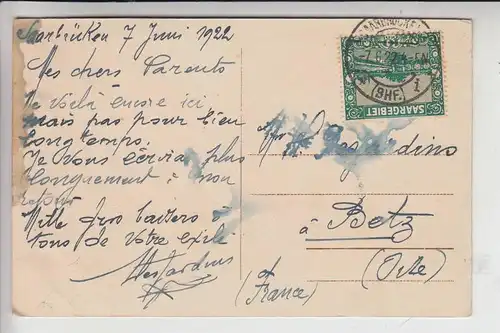 Saarbrücken 7 Juni 1922
Mes chers Parents
Me voilà encore ici
mais pas pour bien
longtemps.
Je vous écrirai plus
longuement à mon
retour
Mille gros baisers à
tous de votre exilé
Desjardins
SAARBRÜCKEN
(BHF.)
SAARGEBIET
Desjardins
à Betz
(Oise)
(France)